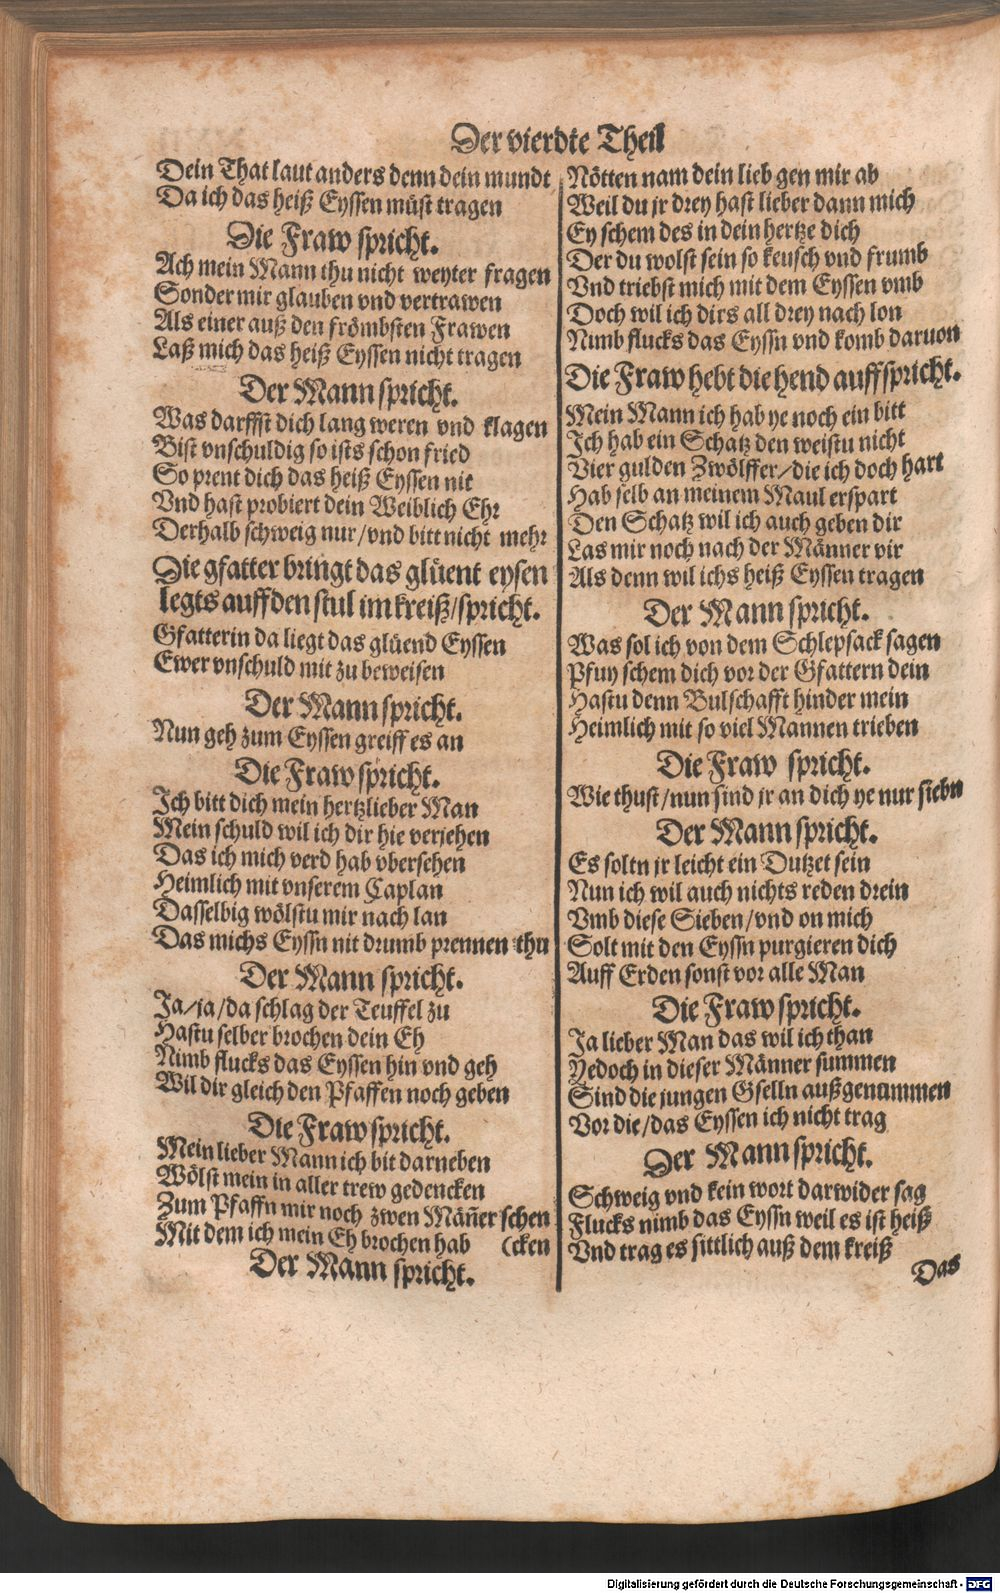 Der vierdte Theil
Dein That laut anders denn dein mundt
Da ich das heiß Eyssen müst tragen
Die Fraw spricht.
Ach mein Mann thu nicht weyter fragen
Sonder mir glauben vnd vertrawen
Als einer auß den frömbsten Frawen
Laß mich das heiß Eyssen nicht tragen
Der Mann spricht.
Was darffst dich lang weren vnd klagen
Bist vnschuldig so ists schon fried
So prent dich das heiß Eyssen nit
Vnd hast probiert dein Weiblich Ehr
Derhalb schweig nur/vnd bitt nicht mehr
Die gfatter bringt das glüent eysen
legts auff den stul im kreiß/spricht.
Gfatterin da liegt das glüend Eyssen
Ewer vnschuld mit zu beweisen
Der Mann spricht.
Nun geh zum Eyssen greiff es an
Die Fraw spricht.
Ich bitt dich mein hertzlieber Man
Mein schuld wil ich dir hie verjehen
Das ich mich verd hab vbersehen
Heimlich mit vnserem Caplan
Dasselbig wölstu mir nach lan
Das michs Eyssn nit drumb prennen thu
Der Mann spricht.
Ja/ja/da schlag der Teuffel zu
Hastu selber brochen dein Eh
Nimb flucks das Eyssen hin vnd geh
Wil dir gleich den Pfaffen noch geben
Die Fraw spricht.
Mein lieber Mann ich bit darneben
Wölst mein in aller trew gedencken
Zum Pfaffn mir noch zwen Mäñer schen
Mit dem ich mein Eh brochen hab (cken
Der Mann spricht.
Nötten nam dein lieb gen mir ab
Weil du jr drey hast lieber dann mich
Ey schem des in dein hertze dich
Der du wolst sein so keusch vnd frumb
Vnd triebst mich mit dem Eyssen vmb
Doch wil ich dirs all drey nach lon
Nimb flucks das Eyssn vnd komb daruon
Die Fraw hebt die hend auff spricht.
Mein Mann ich hab ye noch ein bitt
Ich hab ein Schatz den weistu nicht
Vier gulden Zwölffer/die ich doch hart
Hab selb an meinem Maul erspart
Den Schatz wil ich auch geben dir
Las mir noch nach der Männer vir
Als denn wil ichs heiß Eyssen tragen
Der Mann spricht.
Was sol ich von dem Schlepsack sagen
Pfuy schem dich vor der Gfattern dein
Hastu denn Bulschafft hinder mein
Heimlich mit so viel Mannen trieben
Die Fraw spricht.
Wie thust/nun sind jr an dich ye nur siebn
Der Mann spricht.
Es soltn jr leicht ein Dutzet sein
Nun ich wil auch nichts reden drein
Vmb diese Sieben/vnd on mich
Solt mit den Eyssn purgieren dich
Auff Erden sonst vor alle Man
Die Fraw spricht.
Ja lieber Man das wil ich than
Yedoch in dieser Männer summen
Sind die jungen Gselln außgenummen
Vor die/das Eyssen ich nicht trag
Der Mann spricht.
Schweig vnd kein wort darwider sag
Flucks nimb das Eyssn weil es ist heiß
Vnd trag es sittlich auß dem kreiß
Das
Digitalisierung gefördert durch die Deutsche Forschungsgemeinschaft - DFG